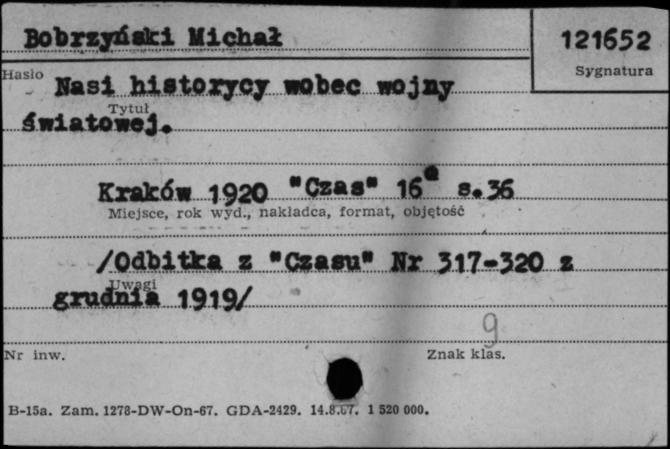 Bobrzyński Michał
121652
Hasło
Sygnatura
Nasi historycy wobec wojny
Tytuł
światowej.
Kraków 1920 "Czas" 16ª s.36
Miejsce, rok wyd., nakładca, format, objętość
/Odbitka z "Czasu" Nr 317-320 z
Uwagi
grudnia 1919/
9
Nr inw.
Znak klas.
B-15a. Zam. 1278-DW-On-67. GDA-2429. 14.8.67. 1 520 000.